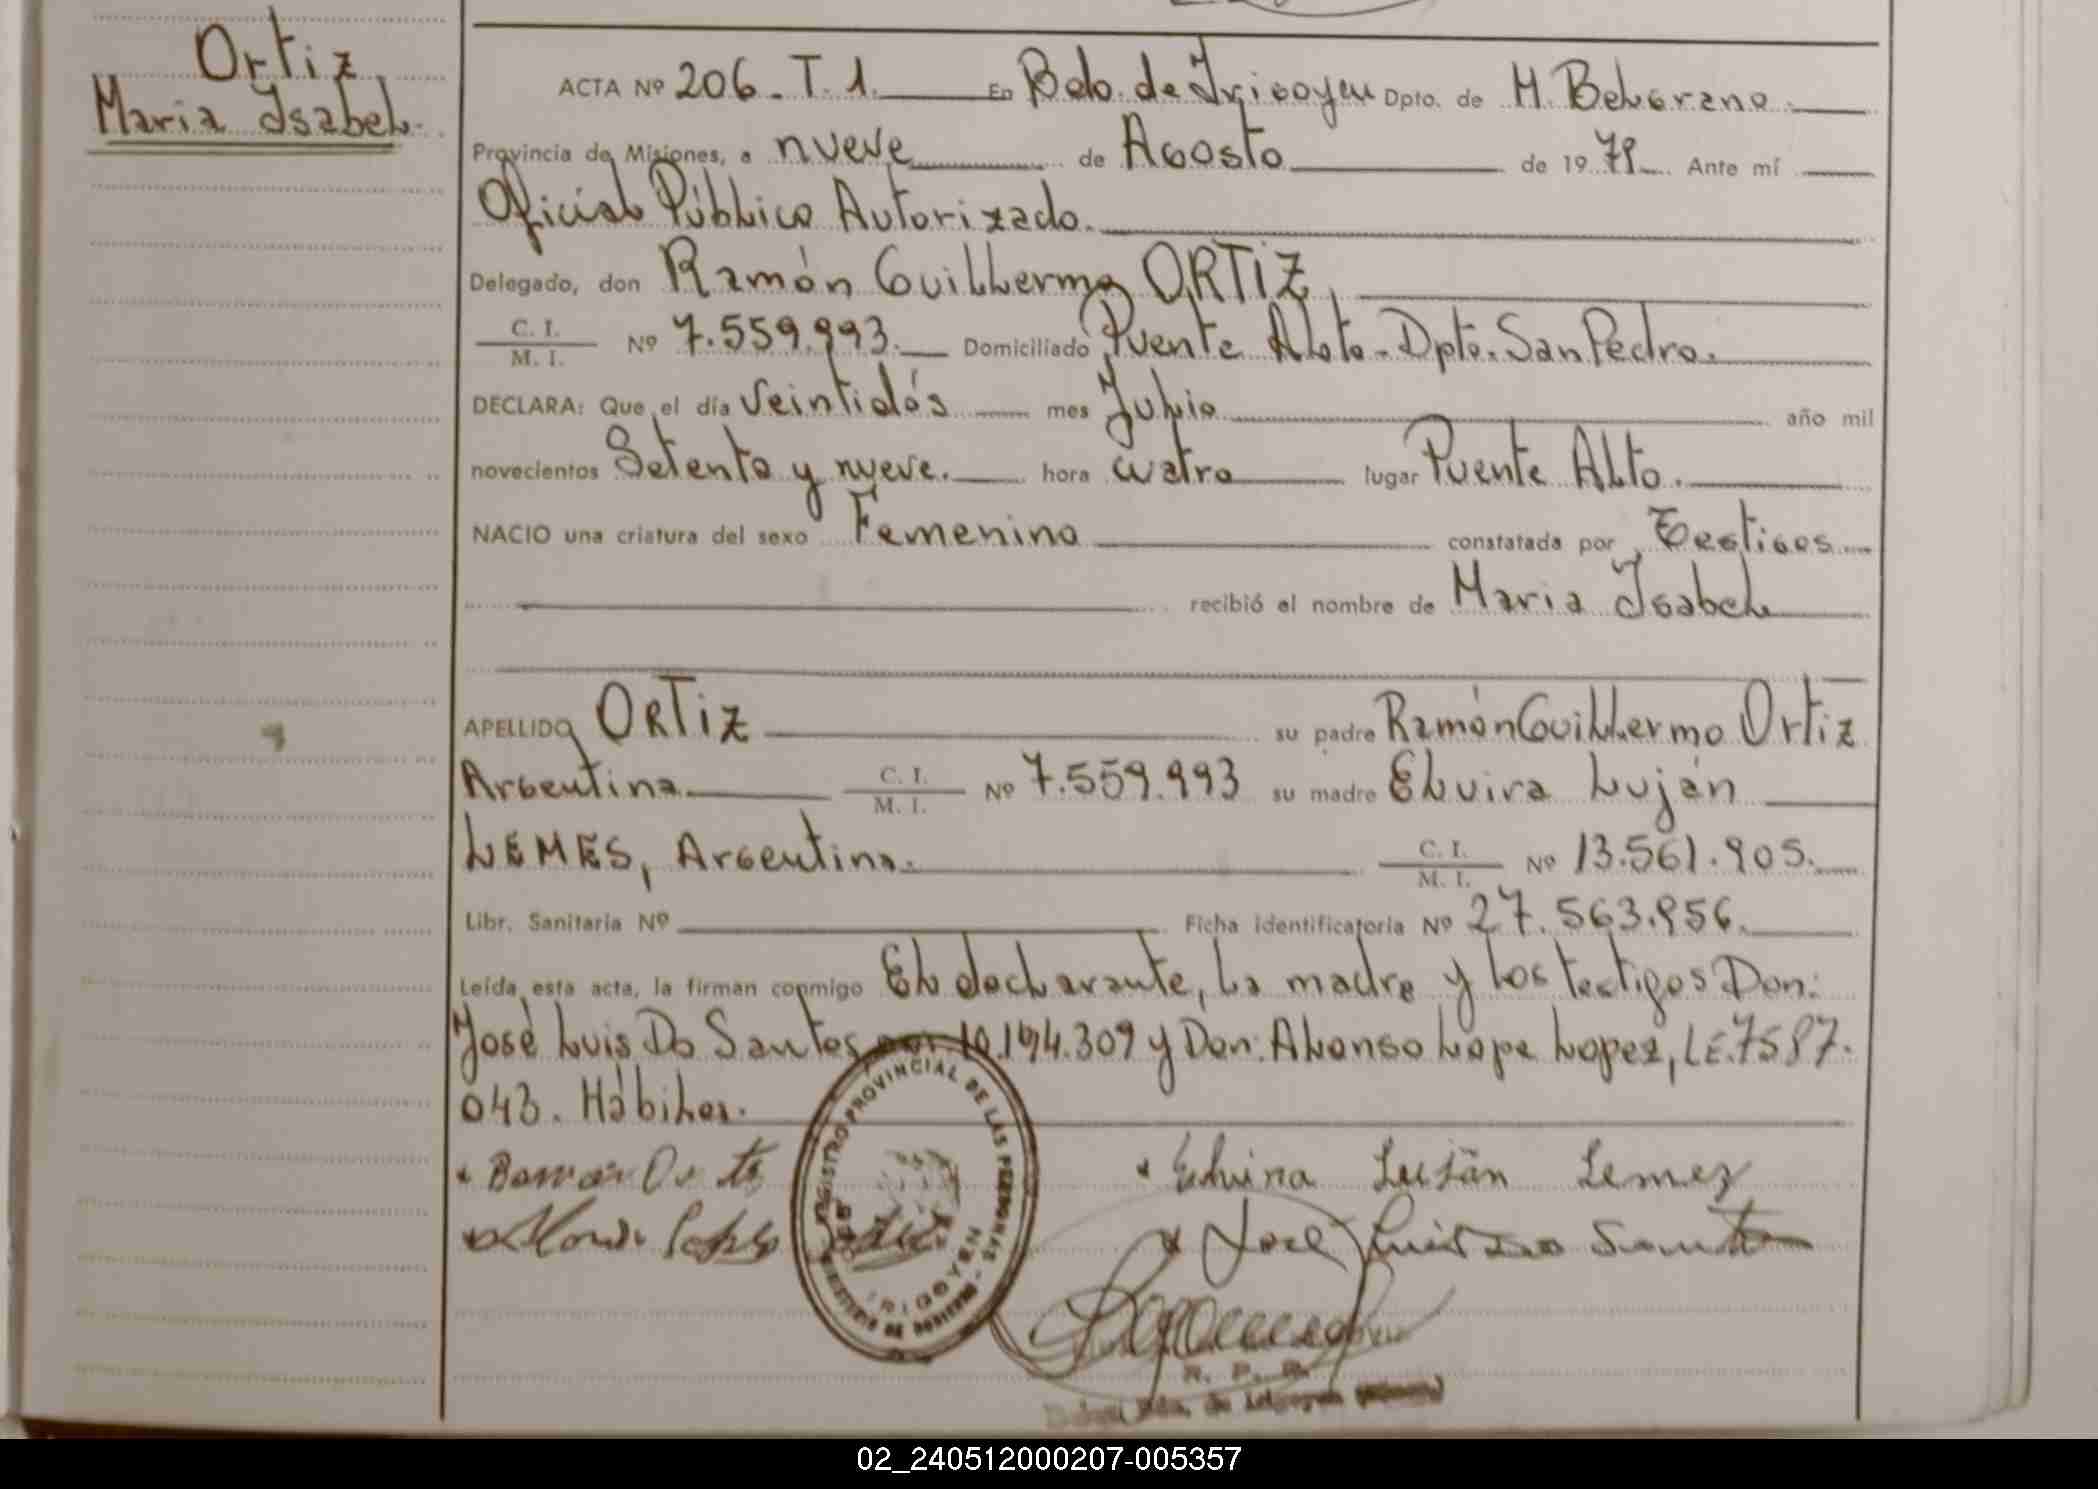 Ortiz
Maria Isabel.
ACTA Nº 206. T. 1. En Bdo. de Irigoyen Dpto. de M. Belgrano.
Provincia de Misiones, a nueve de Agosto de 1979. Ante mí
Oficial Público Autorizado.
Delegado, don Ramón Guillermo ORTIZ,
C. I.
M. I. Nº 7.559.993. Domiciliado Puente Alto - Dpto. San Pedro.
DECLARA: Que el día veintidós mes Julio año mil
novecientos Setenta y nueve. hora cuatro lugar Puente Alto.
NACIO una criatura del sexo Femenino constatada por Testigos
recibió el nombre de Maria Isabel
APELLIDO ORTIZ su padre Ramón Guillermo Ortiz
Argentina C. I. M. I. Nº 7.559.993 su madre Elvira Luján
LEMES, Argentina. C. I. M. I. Nº 13.561.905.
Libr. Sanitaria Nº Ficha identificatoria Nº 27.563.956.
Leída esta acta, la firman conmigo El declarante, la madre y los testigos Don:
José Luis Do Santos 10.194.309 y Don: Alonso Lope Lopez, LE.7587.
043. Hábiles.
Elvira Luján Lemez
Jose Luis Do Santo
REGISTRO PROVINCIAL DE LAS PERSONAS
IRIGOYEN
R. P.
02_240512000207-005357